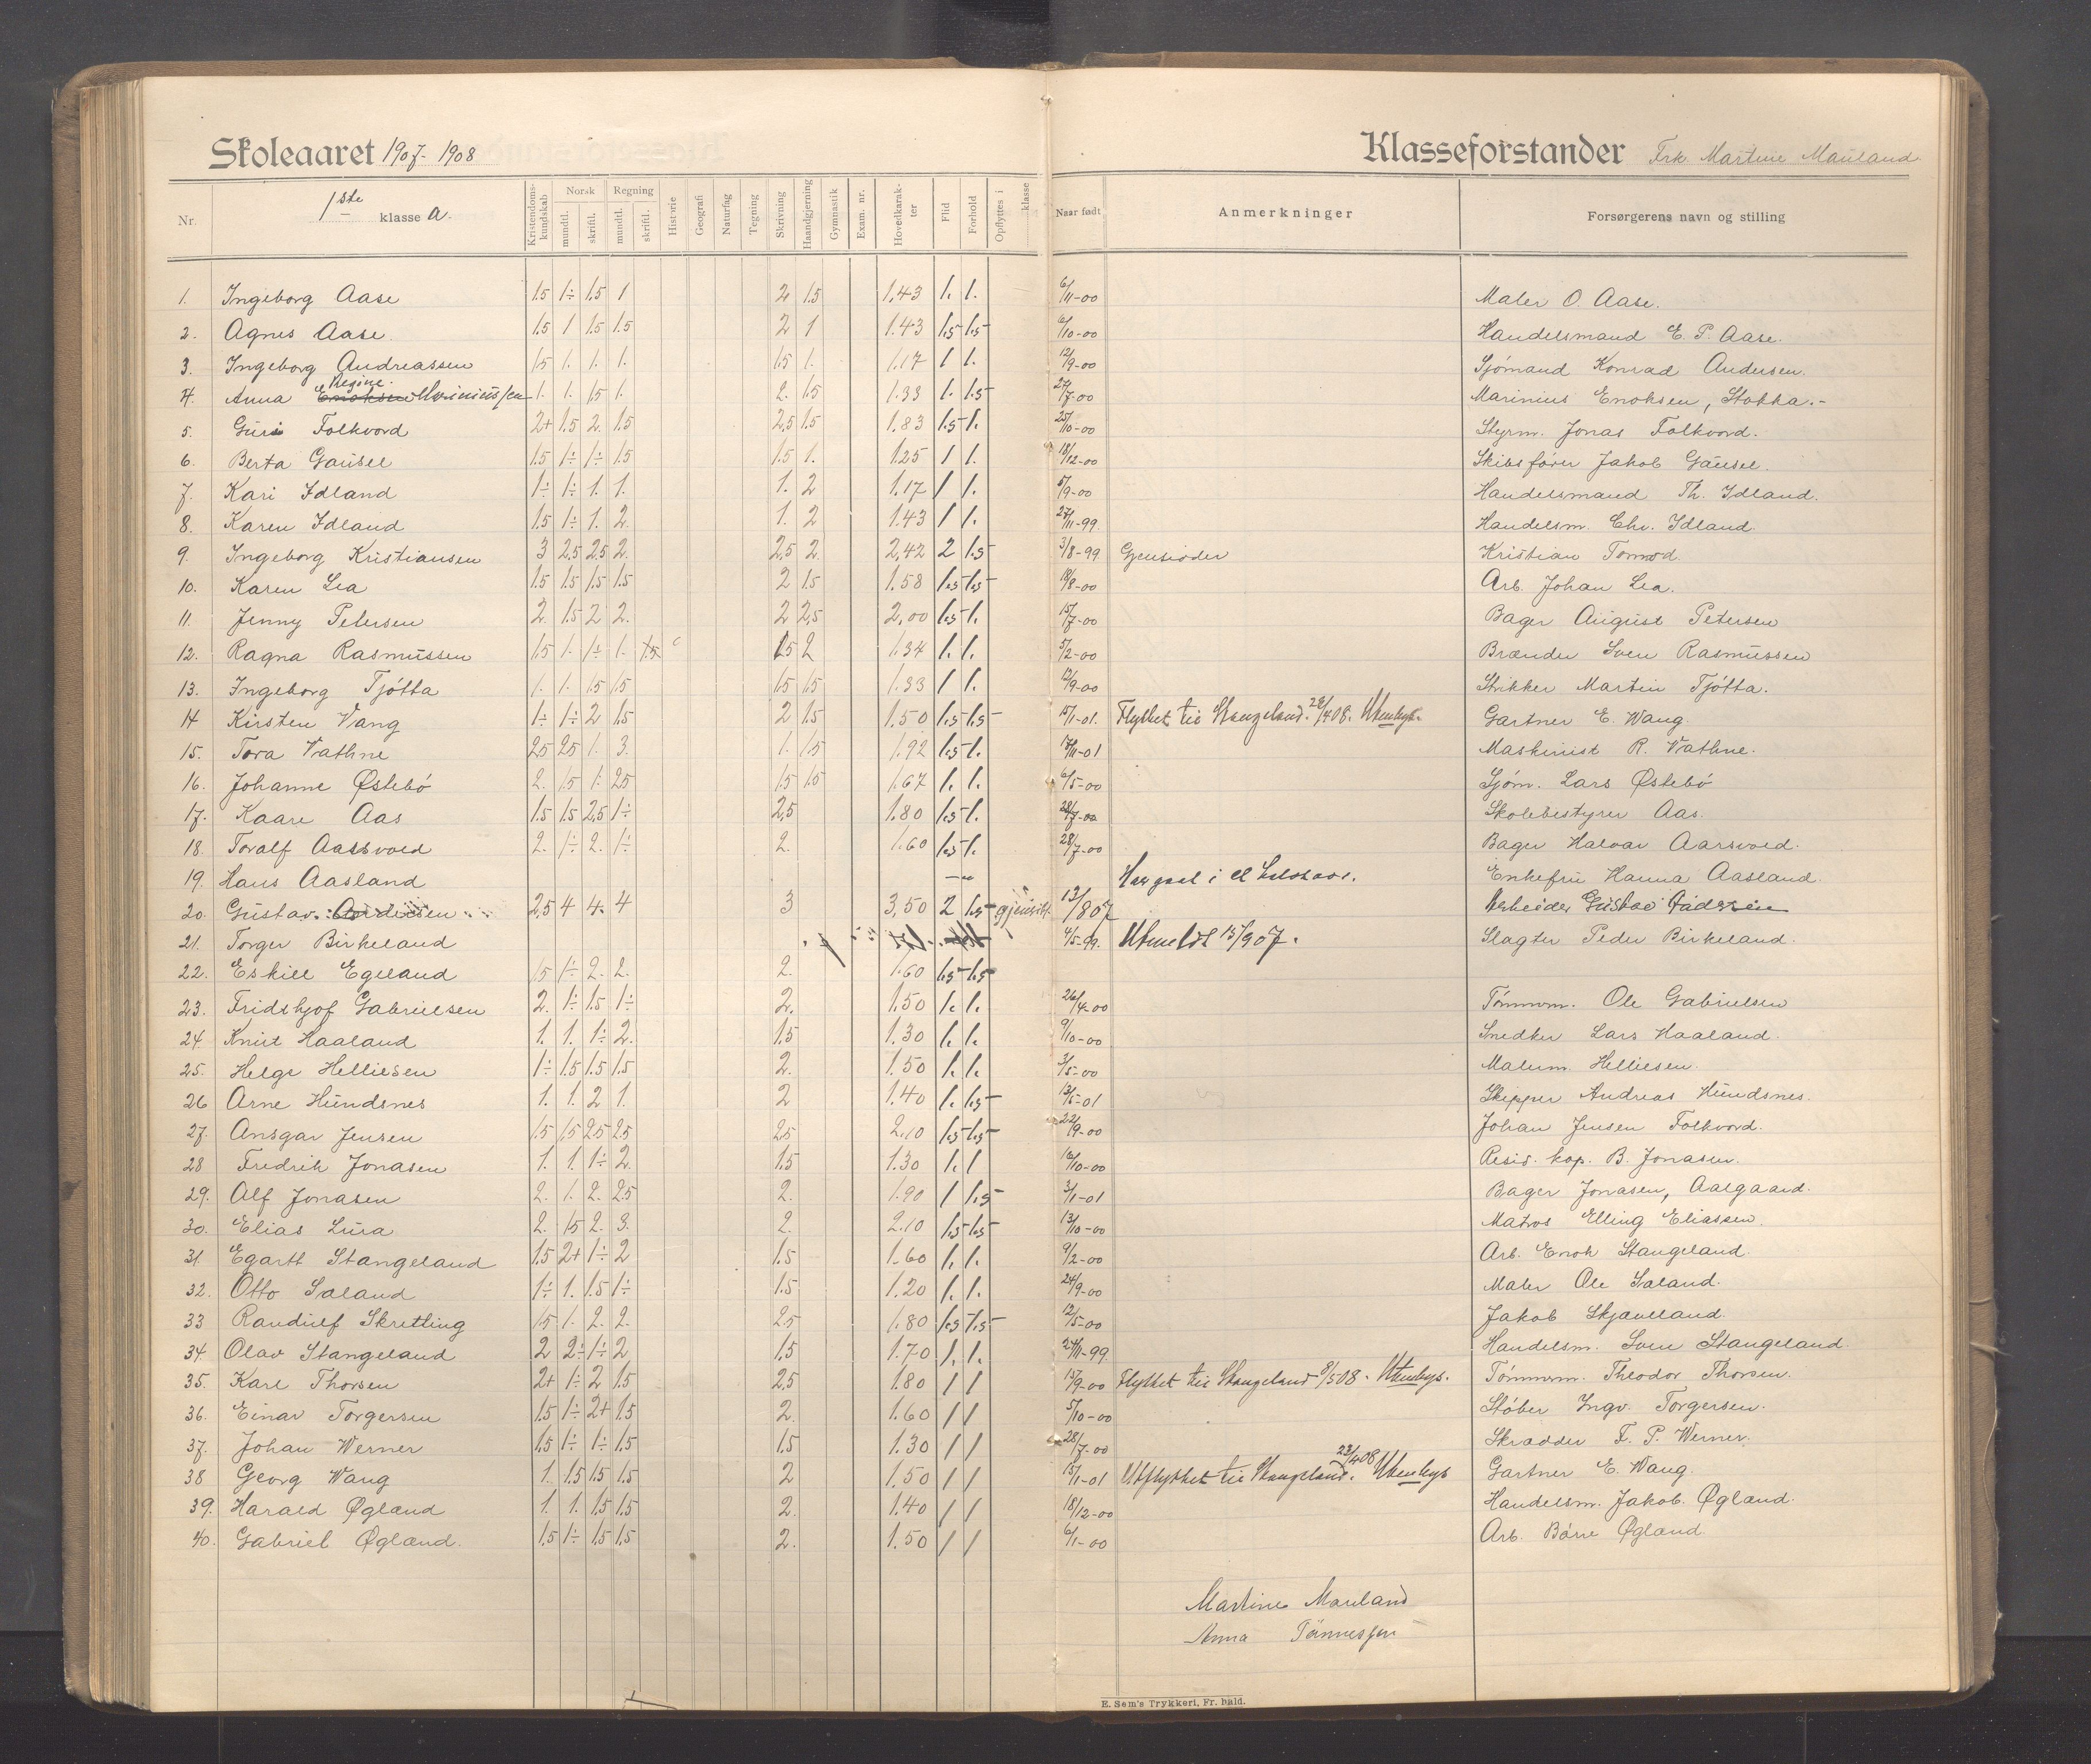 Skoleaaret 1907-1908
Klasseforstander Frk. Martine Mauland
Nr. 1ste klasse A. Kristendomskundskab Norsk mundtl. skriftl. Regning mundtl. skriftl. Historie Geografi Naturfag Tegning Skrivning Haandgjerning Gymnastik Exam. nr. Hovedkarakter Flid Forhold Opflyttes i klasse Naar født Anmerkninger Forsørgerens navn og stilling
1. Ingeborg Aase 1.5 1÷ 1.5 1 2 1.5 1.43 1. 1. 6/11-00 Maler O. Aase.
2. Agnes Aase 1.5 1 1.5 1.5 2 1 1.43 1.5 1.5 6/10-00 Handelsmand E. P. Aase.
3. Ingeborg Andreassen 1.5 1. 1. 1. 1.5 1. 1.17 1 1. 12/9-00 Sjømand Konrad Andersen.
4. Anna Regine Enoksen Mariniussen 1. 1. 1.5 1. 2. 1.5 1.33 1. 1.5 24/7-00 Marinius Enoksen, Stokka.-
5. Guri Folkvord 2+ 1.5 2. 1.5 2,5 1.5 1.83 1.5 1. 25/10-00 Styrm. Jonas Folkvord.
6. Berta Gausel 1.5 1÷ 1÷ 1.5 1.5 1. 1.25 1 1. 18/12-00 Skibsfører Jakob Gausel.
7. Kari Idland 1÷ 1÷ 1. 1. 1. 2 1.17 1 1. 5/9-00 Handelsmand Th. Idland.
8. Karen Idland 1.5 1÷ 1. 2. 1. 2 1.43 1 1. 27/11-99 Handelsm. Chr. Idland
9. Ingeborg Kristiansen 3 2.5 2.5 2. 2,5 2. 2,42 2 1.5 3/8-99 Gjensidder Kristian Tormod
10. Karen Lea 1.5 1.5 1.5 1.5 2 1.5 1.58 1.5 1.5 18/8-00 Arb. Johan Lea.
11. Jenny Petersen 2. 1.5 2 2. 2 2,5 2,00 1.5 1. 15/7-00 Bager August Petersen
12. Ragna Rasmussen 1.5 1. 1÷ 1. 1.5 1.5 2 1.34 1. 1. 5/2-00 Brænder Sven Rasmussen
13. Ingeborg Tjøtta 1. 1. 1.5 1.5 1.5 1.5 1.33 1 1. 12/9-00 Strikker Martin Tjøtta.
14 Kirsten Vang 1÷ 1÷ 2 1.5 2 1.5 1.50 1.5 1.5 15/1-01. Flyttet til Stangeland. 28/4 08. Utenbys. Gartner E. Wang.
15. Tora Vathne 2.5 2.5 1. 3. 1. 1.5 1.92 1.5 1. 17/11-01 Maskinist R. Vathne.
16. Johanne Østebø 2. 1.5 1. 2.5 1.5 1.5 1.67 1. 1. 6/5-00 Sjøm. Lars Østebø
17. Kaare Aas 1.5 1.5 2,5 1÷ 2,5 1.80 1.5 1. 28/7-00 Skolebestyrer Aas.
18. Toralf Aarsvold 2. 1÷ 2. 1÷ 2. 1.60 1.5 1. 28/7-00 Bager Halvar Aarsvold.
19. Hans Aasland — Enkefru Hanna Aasland.
20. Gustav 2,5 4 4. 4 3 3,50 2 1.5 gjensidd. 13/8 07 Arbeider Gustav
21. Torger Birkeland 4/5-99. Utmeldt 15/9 07. Slagter Peder Birkeland.
22. Eskill Egeland 1.5 1÷ 2. 2. 2. 1.60 1.5 1.5
23. Fridthjof Gabrielsen 2. 1÷ 1.5 1÷ 2. 1.50 1. 1. 26/4-00 Tømmerm. Ole Gabrielsen
24. Knut Haaland 1. 1. 1÷ 2. 1.5 1.30 1. 1. 9/10-00 Snedker Lars Haaland.
25. Helge Helliesen 1÷ 1.5 1.5 1.5 2. 1.50 1. 1. 3/5-00 Malerm. Helliesen.
26 Arne Hundsnes 1. 1. 2 1. 2 1.40 1. 1.5 13/5-01 Skipper Andreas Hundsnes.
27. Ansgar Jensen 1.5 1.5 2.5 2.5 2.5 2.10 1.5 1.5 22/9-00 Johan Jensen Folkvord.
28 Fredrik Jonasen 1. 1. 1÷ 2. 1.5 1.30 1. 1 16/10-00 Resid. kap. B. Jonasen.
29. Alf Jonasen 2. 1. 2. 2.5 2. 1.90 1 1.5 3/1-01 Bager Jonasen, Aalgaard.
30. Elias Lura 2. 1.5 2. 3. 2. 2.10 1.5 1.5 13/10-00 Matros Elling Eliassen.
31 Egartt Stangeland 1.5 2+ 1÷ 2 1.5 1.60 1. 1. 9/2-00 Arb. Enok Stangeland.
32. Otto Saland 1÷ 1. 1.5 1÷ 1.5 1.20 1. 1. 24/9-00 Maler Ole Saland.
33 Randulf Skretting 1.5 1. 2. 2. 2.5 1.80 1.5 1.5 12/5-00 Jakob Skjæveland.
34. Olav Stangeland 2 2÷ 1÷ 2 1.5 1.70 1. 1. 24/11-99 Handelsm. Sven Stangeland.
35. Karl Thorsen 2+ 1÷ 2 1.5 2,5 1.80 1 1 15/9-00 Flyttet til Stangeland 8/5 08. Utenbys. Tømmerm. Theodor Thorsen.
36. Einar Torgersen 1.5 1÷ 2+ 1.5 2. 1.60 1 1 5/10-00 Støber Ingv. Torgersen.
37. Johan Werner 1.5 1÷ 1÷ 1.5 1.5 1.30 1 1 28/7-00 Skrædder F. P. Werner.
38 Georg Wang 1. 1.5 1.5 1.5 2 1.50 1 1 15/1-01 Utflyttet til Stangeland. 23/4 08 Utenbys Gartner E. Wang.
39. Harald Øgland 1. 1. 1.5 1.5 2. 1.40 1 1 18/12-00 Handelsm. Jakob Øgland.
40. Gabriel Øgland. 1.5 1÷ 1.5 1.5 2. 1.50 1 1 6/1-00 Arb. Børre Øgland.
Martine Mauland
Anna Tønnessen
E. Sem's Trykkeri, Fr. hald.